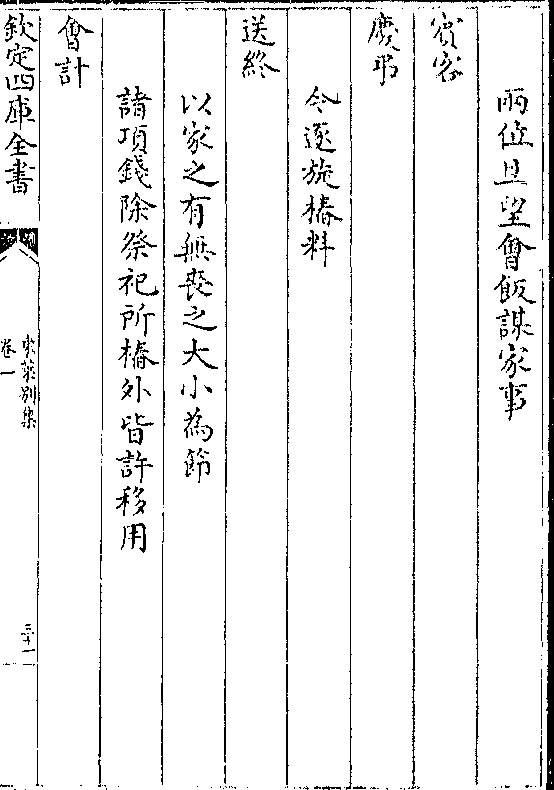 兩位旦望會飯謀家事
賓客
慶弔
令逐旋樁料
送終
以家之有無喪之大小為節
諸項錢除祭祀所樁外皆許移用
會計
欽定四庫全書
東萊別集
卷一